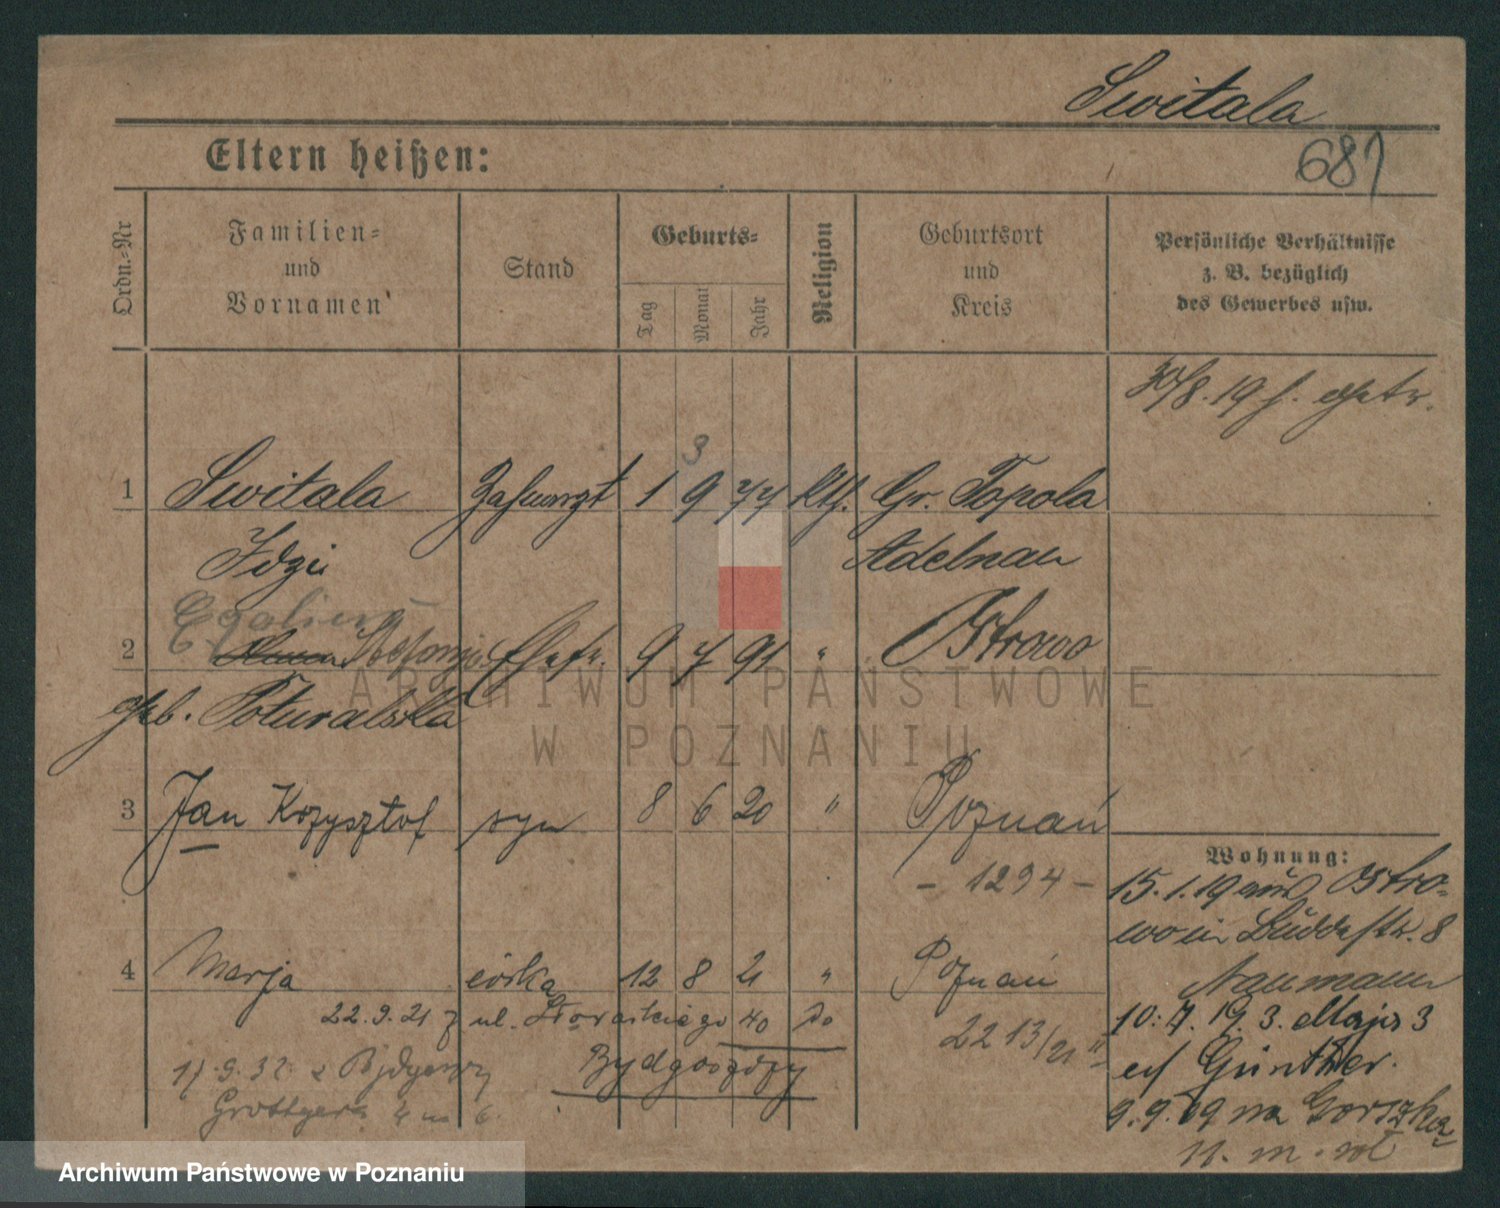 Switala
Eltern heißen:
681
Ordn.-Nr
Familien-
und
Vornamen
Stand
Geburts-
Tag
Monat
Jahr
Religion
Geburtsort
und
Kreis
Persönliche Verhältnisse
z. B. bezüglich
des Gewerbes usw.
30/8. 19
3
1 Switala Zahnarzt 1 9 77 kth. Gr. Topola
Idzi Adelnau
2 Stefanja Ehefr. 9 7 91 " Ostrowo
geb. Poturalska
3 Jan Krzysztof syn 8 6 20 " Poznań
- 1294 -
Wohnung:
15. 1. 19 aus Ostro-
wo in Buddestr. 8
Naumann
4 Marja córka 12 8 21 " Poznań
22. 9. 21 z ul. 40 do
Bydgoszczy
2213/21
10. 7. 19. 3. Maja 3
Günther.
17. 9. 32. z Bydgoszczy
Grottgera 4 m 6.
9. 9. 19 na
11. m.
ARCHIWUM PAŃSTWOWE
W POZNANIU
Archiwum Państwowe w Poznaniu